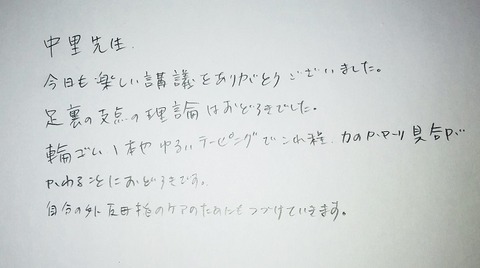 中里先生.
今日も楽しい講議をありがとうございました。
足裏の支点の理論はおどろきでした。
輪ゴム1本やゆるいテーピングでこれ程、力のかかり具合が
かわることにおどろきです。
自分の外反母趾のケアのためにもつづけていきます。